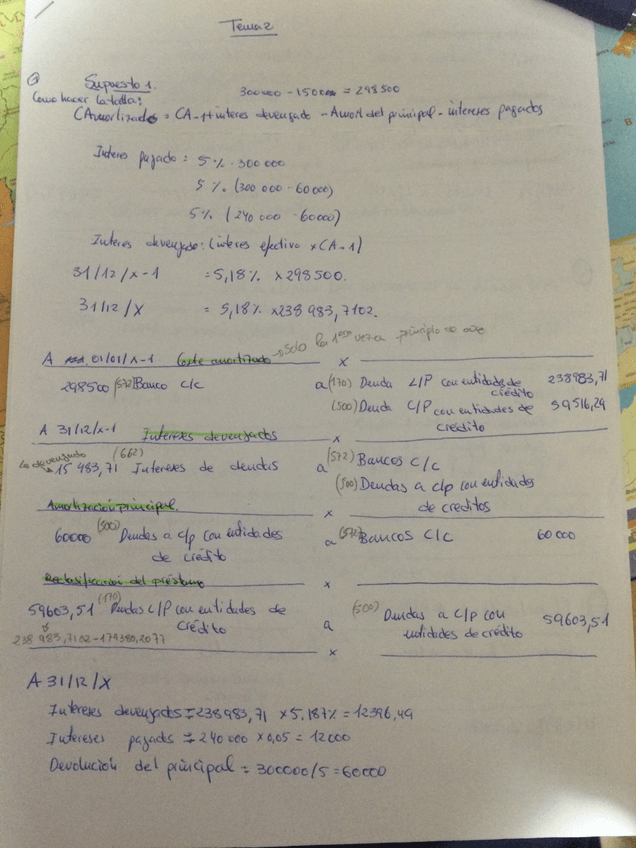 Tema 2
Supuesto 1.
300000 - 1500 = 298500
Como hacer la tabla:
CAmortizado = CA-1 + interes devengado - Amort del principal - intereses pagados
Interes pagado = 5% · 300 000
5% · (300 000 - 60 000)
5% (240 000 - 60000)
Interes devengado: (interes efectivo x CA-1)
31/12/x-1 = 5,18% x 298500.
31/12/X = 5,18% x 238 983,7102.
A 01/01/x-1 Coste amortizado → solo la 1era vez a principio no
298500 (572) Banco c/c a (170) Deuda L/P con entidades de crédito 238983,71
(500) Deuda C/P con entidades de crédito 59516,29
A 31/12/x-1 Intereses devengados x
lo devengado
15 483,71 (662) Intereses de deudas a (572) Bancos C/C
(500) Deudas a c/p con entidades de creditos
Amortización principal x
60000 (500) Deudas a c/p con entidades de crédito a (572) Bancos C/C 60 000
Reclasificación del préstamo x
59603,51 (170) Deudas L/P con entidades de crédito a (500) Deudas a C/P con entidades de crédito 59603,51
238 983,7102 - 179380,2077
x
A 31/12/X
Intereses devengados = 238983,71 x 5,187% = 12396,49
Intereses pagados = 240 000 x 0,05 = 12000
Devolución del principal = 300000/5 = 60000